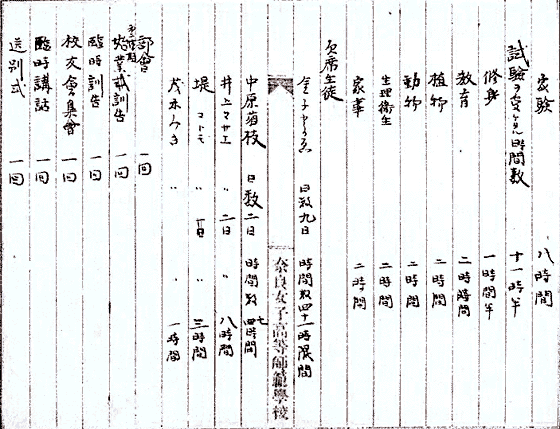 実験 八時間
試験ヲ受ケタル時間数 十一時半
修身 一時間半
教育 二時間
植物 二時間
動物 二時間
生理衛生 二時間
家事 二時間
欠席生徒
日数九日 時間数四十一時限間
奈良女子高等師範學校
中原菊枝 日数二日 時間数 七時間
井上マサエ 〃 二日 〃 八時間
堤コトミ 〃 一日 三時間
茂木つき 〃 〃 一時間
部會 一回
始業式訓告 一回
臨時訓告 一回
校友會集會 一回
臨時講話 一回
送別式 一回